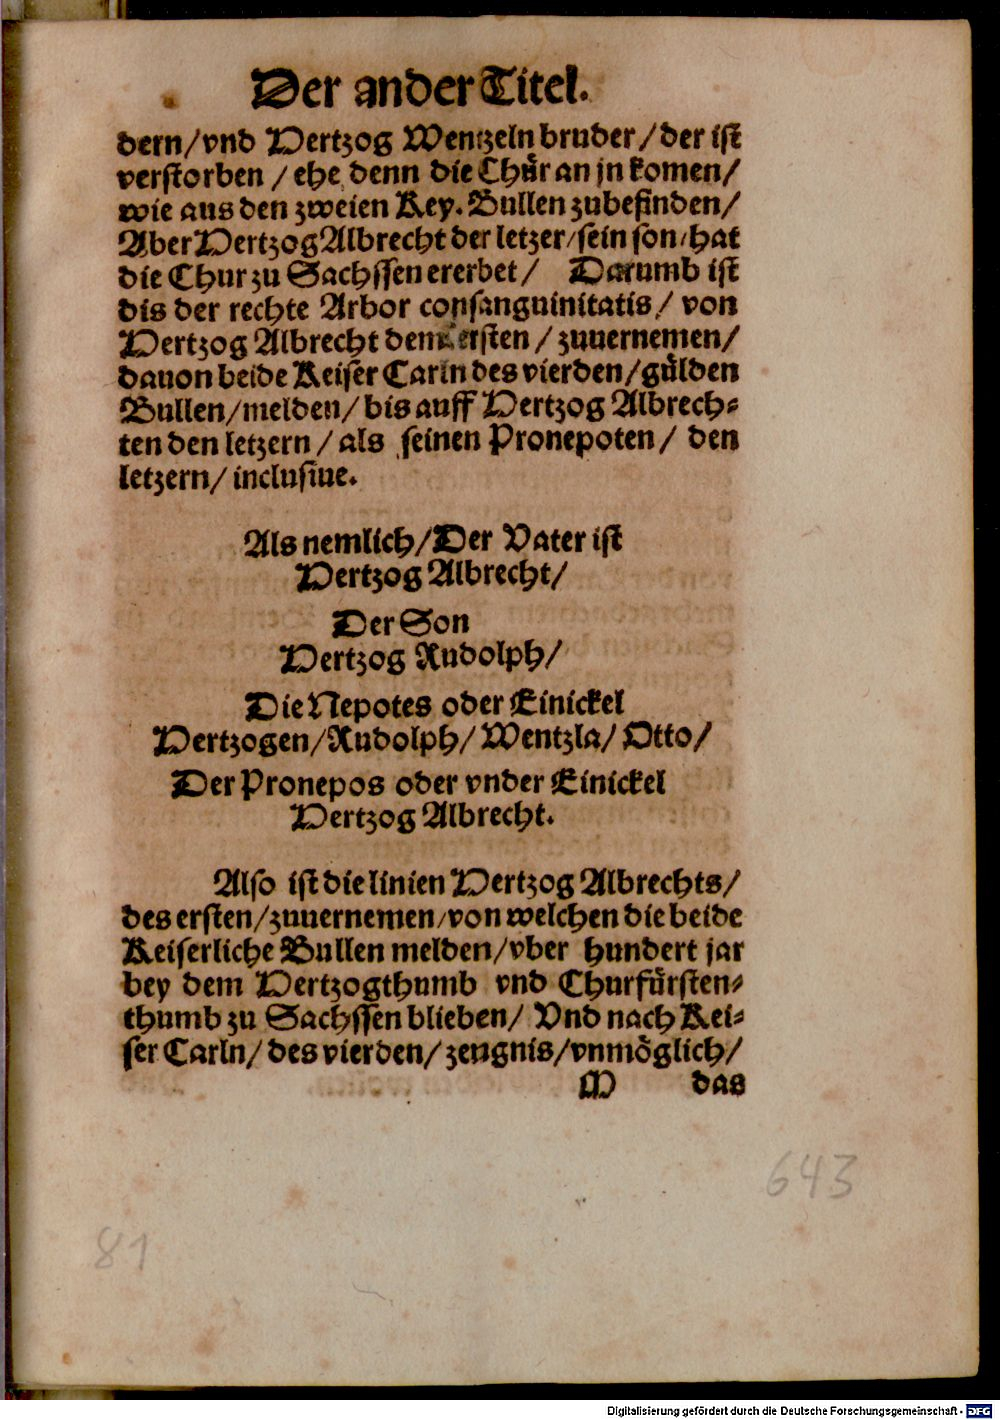 Der ander Titel.
dern/vnd Hertzog Wentzeln bruder/der ist
verstorben/ehe denn die Chůr an jn komen/
wie aus den zweien Key. Bullen zubefinden/
Aber Hertzog Albrecht der letzer/sein son/hat
die Chur zu Sachssen ererbet/ Darumb ist
dis der rechte Arbor consanguinitatis/ von
Hertzog Albrecht dem ersten/zuuernemen/
dauon beide Keiser Carln des vierden/gůlden
Bullen/melden/bis auff Hertzog Albrech-
ten den letzern/als seinen Pronepoten/ den
letzern/inclusiue.
Als nemlich/Der Vater ist
Hertzog Albrecht/
Der Son
Hertzog Rudolph/
Die Nepotes oder Einickel
Hertzogen/Rudolph/Wentzla/Otto/
Der Pronepos oder vnder Einickel
Hertzog Albrecht.
Also ist die linien Hertzog Albrechts/
des ersten/zuuernemen/von welchen die beide
Keiserliche Bullen melden/vber hundert jar
bey dem Hertzogthumb vnd Churfürsten-
thumb zu Sachssen blieben/ Vnd nach Kei-
ser Carln/des vierden/zeugnis/vnmöglich/
M das
643
81
Digitalisierung gefördert durch die Deutsche Forschungsgemeinschaft - DFG